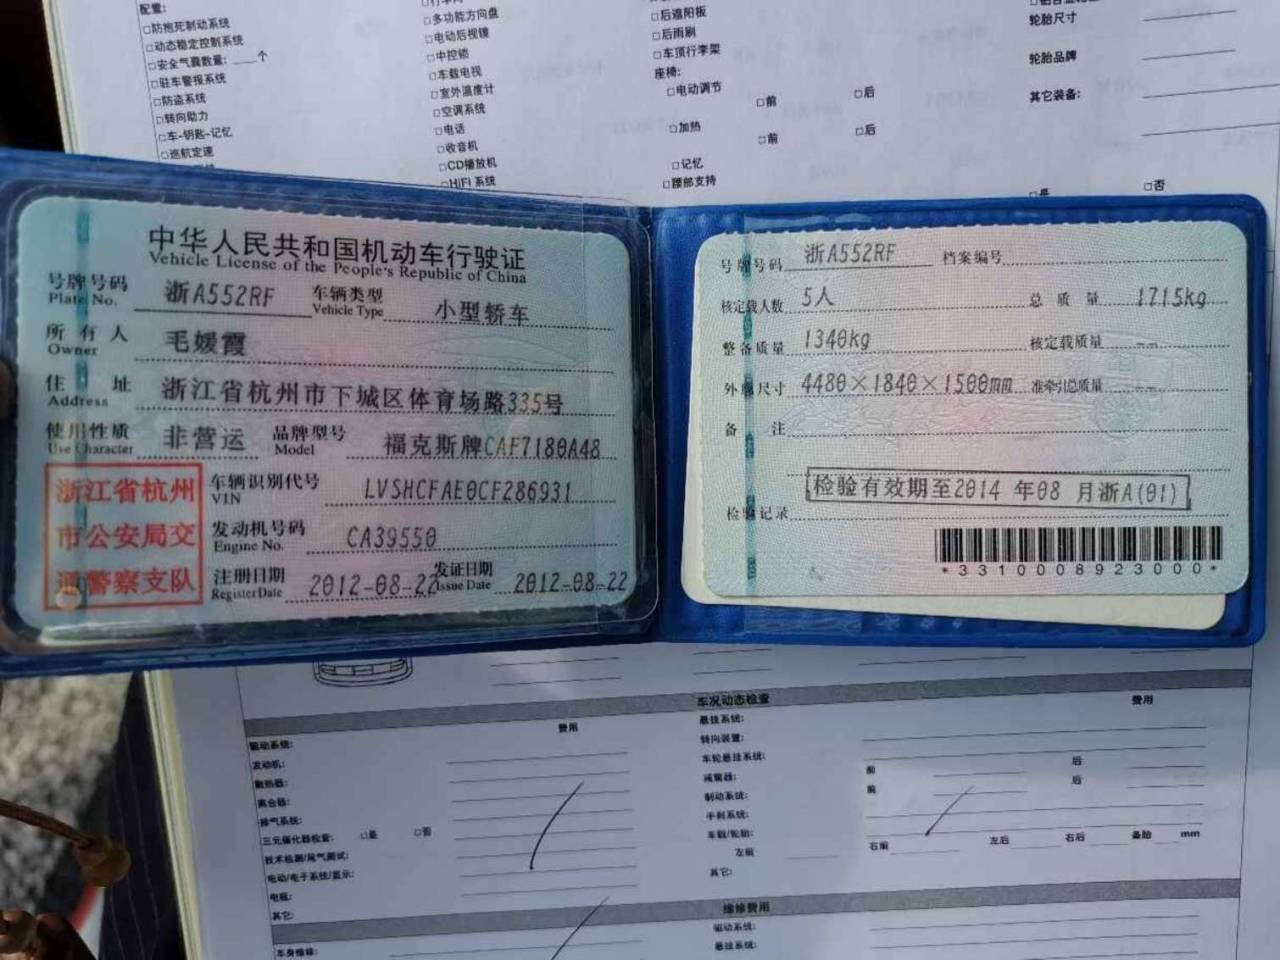 配置:
□防抱死制动系统
□动态稳定控制系统
□安全气囊数量: ____个
□驻车警报系统
□防盗系统
□转向助力
□车-钥匙-记忆
□巡航定速
□多功能方向盘
□电动后视镜
□中控锁
□车载电视
□室外温度计
□空调系统
□电话
□收音机
□CD播放机
□HiFi 系统
□后遮阳板
□后雨刷
□车顶行李架
座椅:
□电动调节
□前 □后
□加热
□前 □后
□记忆
□腰部支持
轮胎尺寸
轮胎品牌
其它装备:
□是 □否
中华人民共和国机动车行驶证
Vehicle License of the People's Republic of China
号牌号码 浙A552RF 车辆类型 小型轿车
Plate No. Vehicle Type
所有人 毛媛霞
Owner
住址 浙江省杭州市下城区体育场路335号
Address
使用性质 非营运 品牌型号 福克斯牌CAF7180A48
Use Character Model
浙江省杭州
市公安局交
通警察支队
车辆识别代号 LVSHCFAE0CF286931
VIN
发动机号码 CA39550
Engine No.
注册日期 2012-08-22 发证日期 2012-08-22
Register Date Issue Date
号牌号码 浙A552RF 档案编号
核定载人数 5人 总质量 1715kg
整备质量 1340kg 核定载质量 --
外廓尺寸 4480×1840×1500mm 准牵引总质量 --
备注
检验有效期至2014 年08 月浙A(01)
检验记录
*3310008923000*
车况动态检查
费用 费用
驱动系统:
发动机:
散热器:
离合器:
排气系统:
三元催化器检查: □是 □否
技术检测/尾气测试:
电动/电子系统/显示:
电瓶:
其它:
悬挂系统:
转向装置:
车轮悬挂系统: 前 后
减震器: 前 后
制动系统:
手刹系统:
车载/轮胎:
左前 右前 左后 右后 备胎 mm
其它:
维修费用
车身维修:
驱动系统:
悬挂系统: